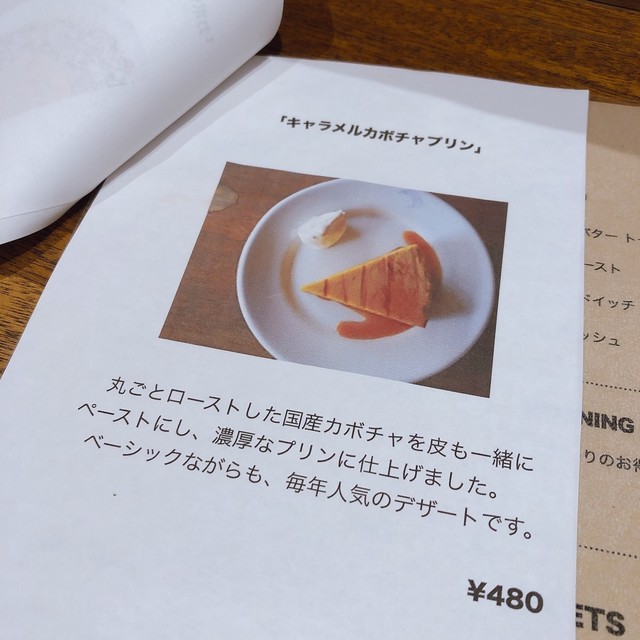 「キャラメルカボチャプリン」
丸ごとローストした国産カボチャを皮も一緒に
ペーストにし、濃厚なプリンに仕上げました。
ベーシックながらも、毎年人気のデザートです。
¥480
バター ト
ースト
ドイッチ
ッシュ
NING
りのお得
ETS